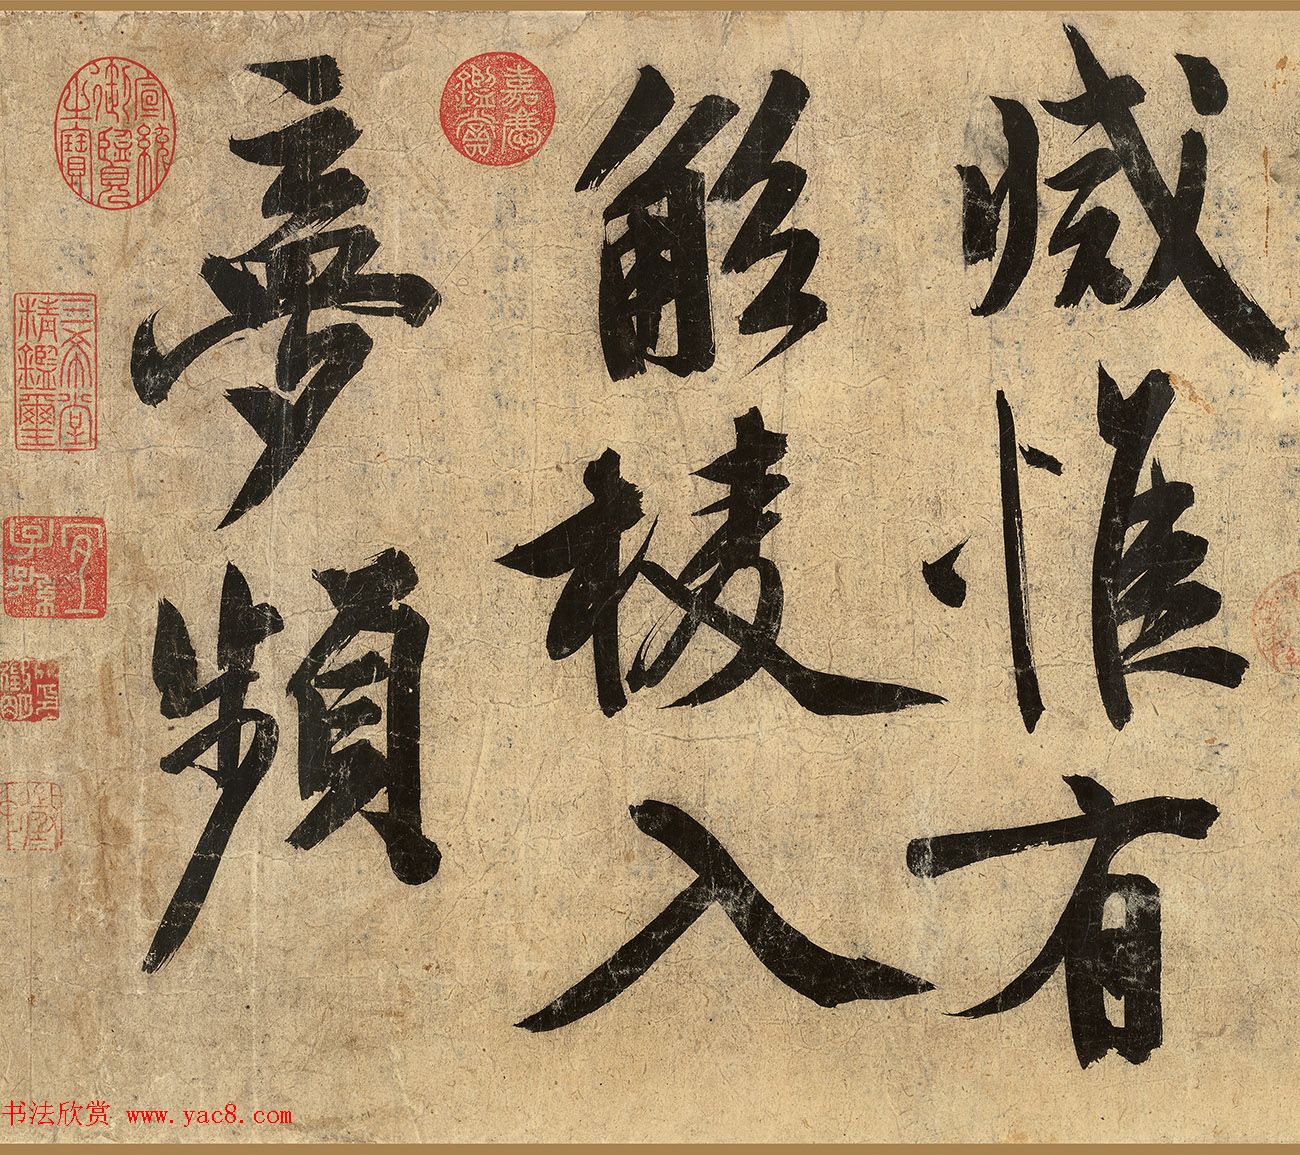 減惟有
觚棱入
夢頻
嘉慶鑑賞
宣統御覽之寶
三希堂精鑑璽
宜子孫
书法欣赏 www.yac8.com